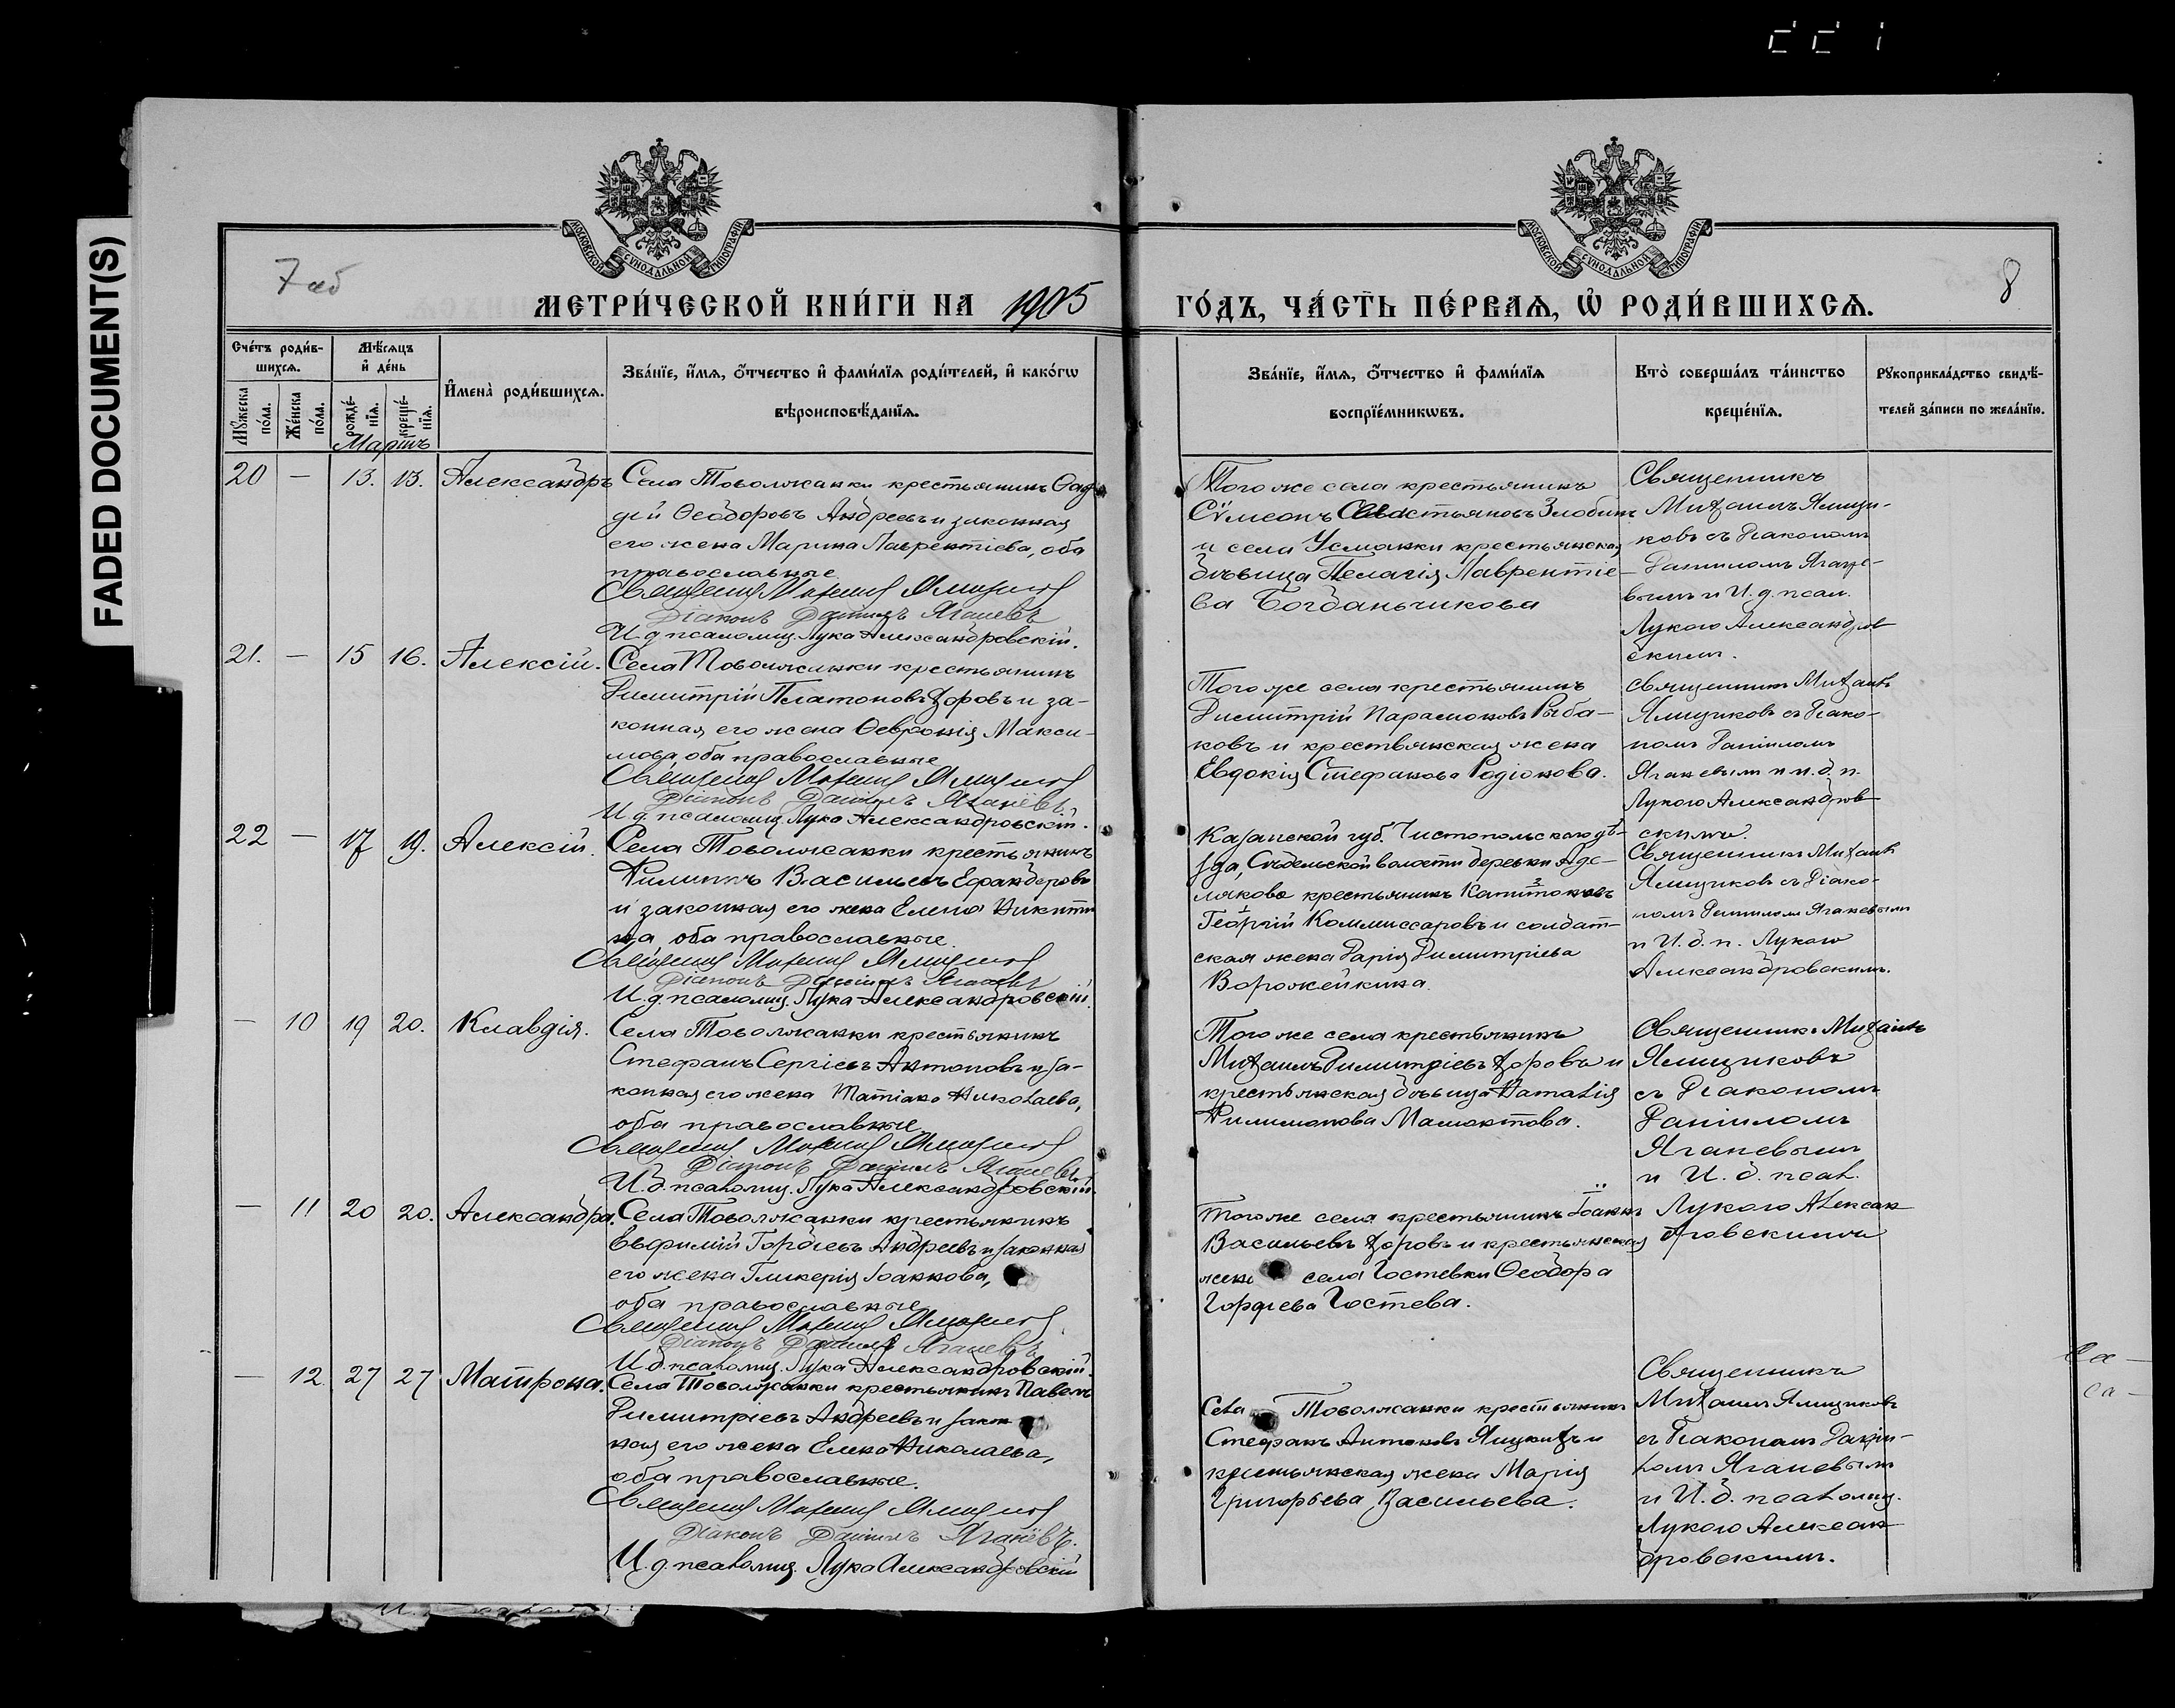 FADED DOCUMENT(S)
7 об
8
МОСКОВСКОЙ СѴНОДАЛЬНОЙ ТИПОГРАФІИ
МОСКОВСКОЙ СѴНОДАЛЬНОЙ ТИПОГРАФІИ
МЕТРИ́ЧЕСКОЙ КНИ́ГИ НА 1905 ГО́ДЪ, ЧА́СТЬ ПЕ́РВАѦ, Ѡ҆ РОДИ́ВШИХСѦ.
Сче́тъ роди́в-
шихсѧ.
Мꙋ́жеска по́ла.
Же́нска по́ла.
Мѣ́сѧцъ
и҆ де́нь
рожде́-
нїѧ.
креще́-
нїѧ.
Мартъ
И҆мена̀ роди́вшихсѧ.
Зва́нїе, и҆́мѧ, ѻ҆́тчество и҆ фами́лїѧ роди́телей, и҆ како́гѡ
вѣроисповѣ́данїѧ.
Зва́нїе, и҆́мѧ, ѻ҆́тчество и҆ фами́лїѧ
воспрїе́мникѡвъ.
Кто̀ соверша́лъ та́инство
креще́нїѧ.
Рꙋкоприкла́дство свидѣ́-
телей за́писи по жела́нїю.
20 — 13. 13. Александръ
Села Товолжанки крестьянинъ Ѳад-
дей Ѳеодоровъ Андреевъ и законная
его жена Марина Лаврентіева, оба
православные
Священникъ Михаилъ Ямщиковъ
Діаконъ Даніилъ Яганевъ
И. д. псаломщ. Лука Александровскій.
Того же села крестьянинъ
Сѵмеонъ Севастьяновъ Злобинъ
и села Усманки крестьянская
дѣвица Пелагія Лаврентіе-
ва Богданьчикова
Священникъ
Михаилъ Ямщи-
ковъ съ діакономъ
Даніиломъ Ягане-
вымъ и И. д. псал.
Лукою Александров
скимъ.
21. — 15 16. Алексій.
Села Товолжанки крестьянинъ
Димитрій Платоновъ Хоровъ и за-
конная его жена Ѳевронія Макси-
мова, оба православные
Священникъ Михаилъ Ямщиковъ
Діаконъ Даніилъ Яганевъ
И. д. псаломщ. Лука Александровскій.
Того же села крестьянинъ
Димитрій Парамоновъ Рыба-
ковъ и крестьянская жена
Евдокія Стефанова Родіонова.
Священникъ Михаилъ
Ямщиковъ съ діако-
номъ Даніиломъ
Яганевымъ и и. д. п.
Лукою Александров-
скимъ.
22 — 17 19. Алексій.
Села Товолжанки крестьянинъ
Филиппъ Васильевъ Ефандеровъ
и законная его жена Елена Никити
на, оба православные.
Священникъ Михаилъ Ямщиковъ
Діаконъ Даніилъ Яганевъ
И. д. псаломщ. Лука Александровскій.
Казанской губ. Чистопольскаго уѣ-
зда, волости деревни
крестьянинъ Капитоновъ
Георгій Коммиссаровъ и солдат-
ская жена Дарія Димитріева
Ворожейкина.
Священникъ Михаилъ
Ямщиковъ съ діако-
номъ Даніиломъ Яганевымъ
и И. д. п. Лукою
Александровскимъ.
— 10 19 20. Клавдія.
Села Товолжанки крестьянинъ
Стефанъ Сергіевъ Антоновъ и за-
конная его жена Татіана Николаева,
оба православные
Священникъ Михаилъ Ямщиковъ
Діаконъ Даніилъ Яганевъ
И. д. псаломщ. Лука Александровскій.
Того же села крестьянинъ
Михаилъ Димитріевъ Хоровъ и
крестьянская дѣвица Наталія
Филимонова
Священникъ Михаилъ
Ямщиковъ
съ діакономъ
Даніиломъ
Яганевымъ
и И. д. псал.
Лукою Алексан
дровскимъ
— 11 20 20. Александра.
Села Товолжанки крестьянинъ
Евфимій Гордіевъ Андреевъ и законная
его жена Гликерія Іоаннова,
оба православные
Священникъ Михаилъ Ямщиковъ
Діаконъ Даніилъ Яганевъ
И. д. псаломщ. Лука Александровскій.
Того же села крестьянинъ Іоаннъ
Васильевъ Хоровъ и крестьянская
жена села Гостевки Ѳеодора
Гордіева Гостева.
— 12 27 27 Матрона.
Села Товолжанки крестьянинъ Павелъ
Димитріевъ Андреевъ и закон
ная его жена Елена Николаева,
оба православные.
Священникъ Михаилъ Ямщиковъ
Діаконъ Даніилъ Яганевъ.
И. д. псаломщ. Лука Александровскій
Села Товолжанки крестьянинъ
Стефанъ Антоновъ и
крестьянская жена Марія
Григорьева Васильева.
Священникъ
Михаилъ Ямщиковъ
съ діакономъ Даніи-
ломъ Яганевымъ
и И. д. псаломщ.
Лукою Алексан
дровскимъ.